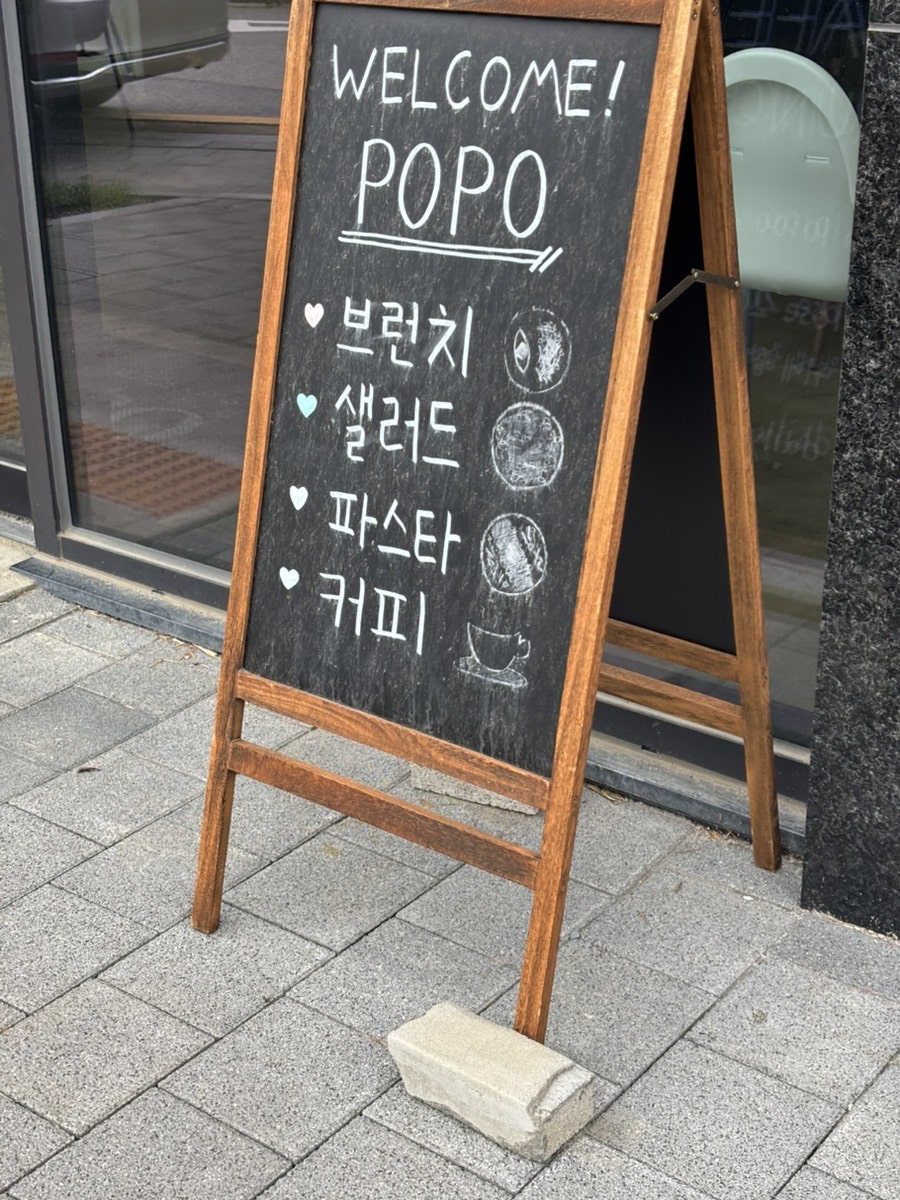 WELCOME!
POPO
브런치
샐러드
파스타
커피